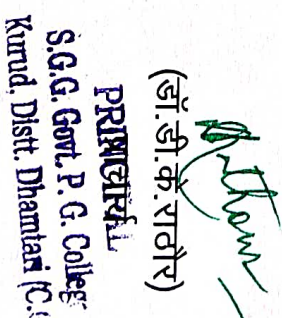 (डॉ.डी.के.राठौर)
PRINCIPAL
S.G.G. Govt. P. G. College
Kurud, Distt. Dhamtari (C.G